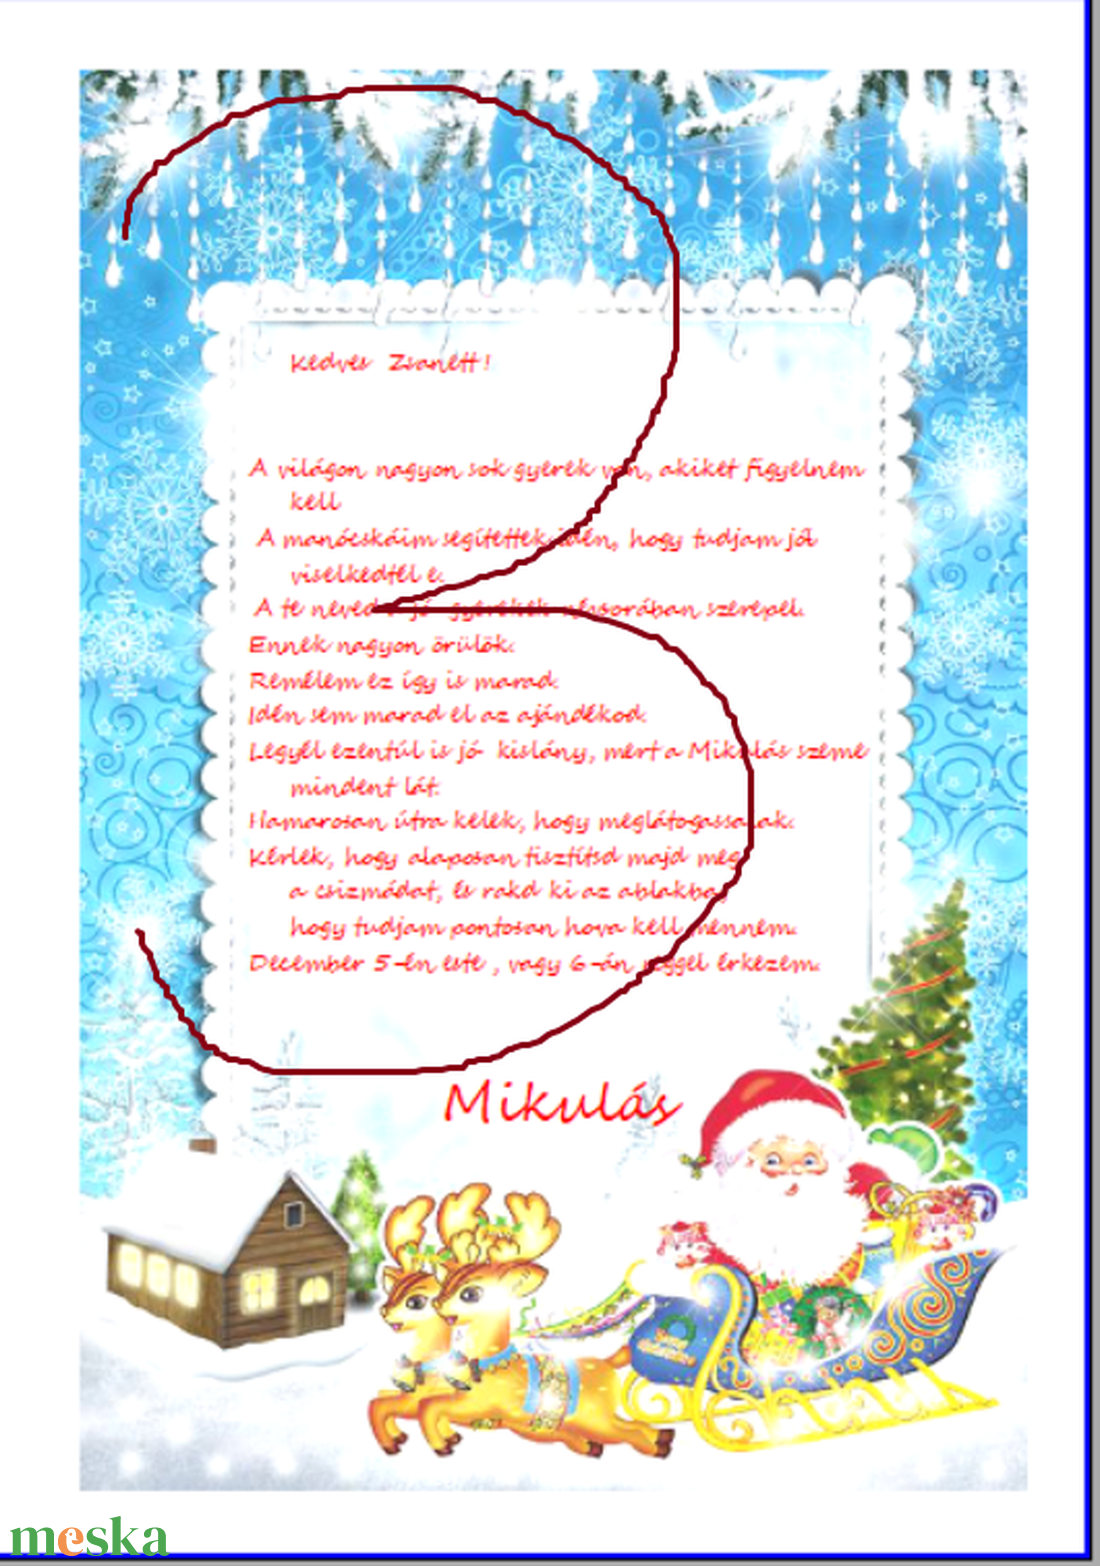 3
Kedves Zsanett!
A világon nagyon sok gyerek van, akiket figyelnem
kell
A manócskáim segítettek idén, hogy tudjam jól
viselkedtél e.
A te neved a jó gyerekek névsorában szerepel.
Ennek nagyon örülök.
Remélem ez így is marad.
Idén sem marad el az ajándékod.
Legyél ezentúl is jó kislány, mert a Mikulás szeme
mindent lát.
Hamarosan útra kelek, hogy meglátogassalak.
Kérlek, hogy alaposan tisztítsd majd meg
a csizmádat, és rakd ki az ablakba,
hogy tudjam pontosan hova kell mennem.
December 5-én este , vagy 6-án reggel érkezem.
Mikulás
meska